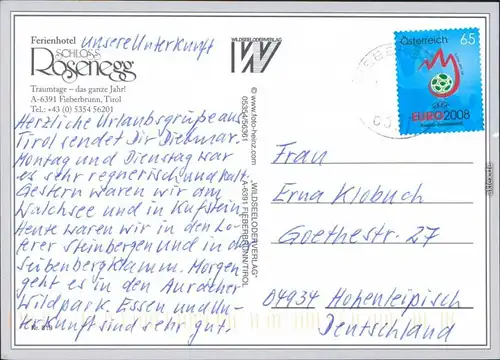 Ferienhotel unsere Unterkunft
SCHLOSS
Rosenegg
Traumtage – das ganze Jahr!
A-6391 Fieberbrunn, Tirol
Tel.: +43 (0) 5354 56201
Herzliche Urlaubsgrüpe aus
Tirol sendet Dir Dietmar.
Montag und Dienstag war
es sehr regnerisch und kalt.
Gestern waren wir am
Walchsee und in Kufstein.
Heute waren wir in den Lo-
ferer Steinbergen und in der
Seisenbergklamm. Morgen
geht es in den Auracher
Wildpark. Essen und Un-
terkunft sind sehr gut.
WILDSEELODERVERLAG
W
© www.foto-heinz.com
05354/56361
"WILDSEELODERVERLAG"
A-6391 FIEBERBRUNN/TIROL
Österreich 65
EURO2008
Frau
Erna Klobuch
Goethestr. 27
04934 Hohenleipisch
Deutschland